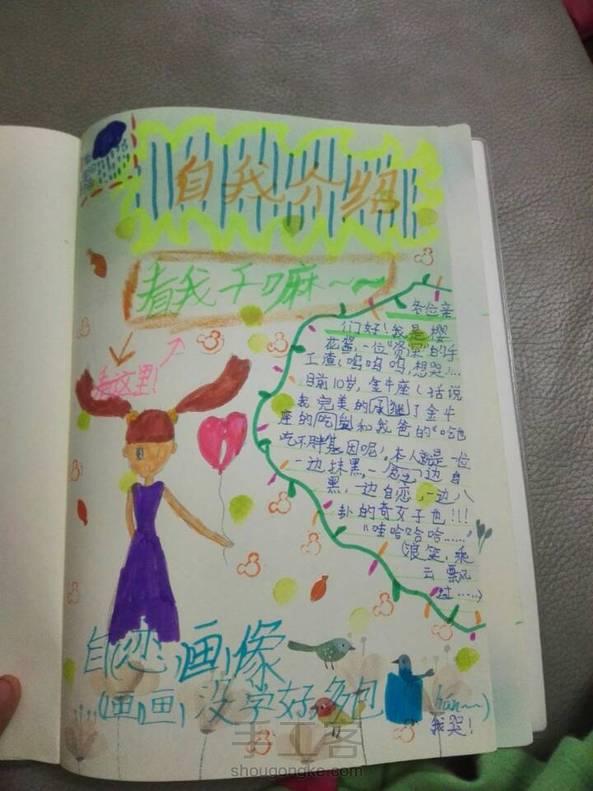 自我介绍
看我干嘛~~
看这里!
各位亲
们好!我是樱
花酱,一位“资深”的手
工渣(呜呜呜,想哭…
目前10岁,金牛座(话说
我完美的承继了金牛
座的吃货和我爸的“吃
吃不胖基因呢,本人就是一位
一边抹黑,一边自
黑,一边自恋,一边八
卦的奇女子也!!!
“哇哈哈哈……”
(浪笑,乘
云飘
过……)
自(恋)画像
(画画)没学好,多包 hán~~)
我哭!
手工客
shougongke.com